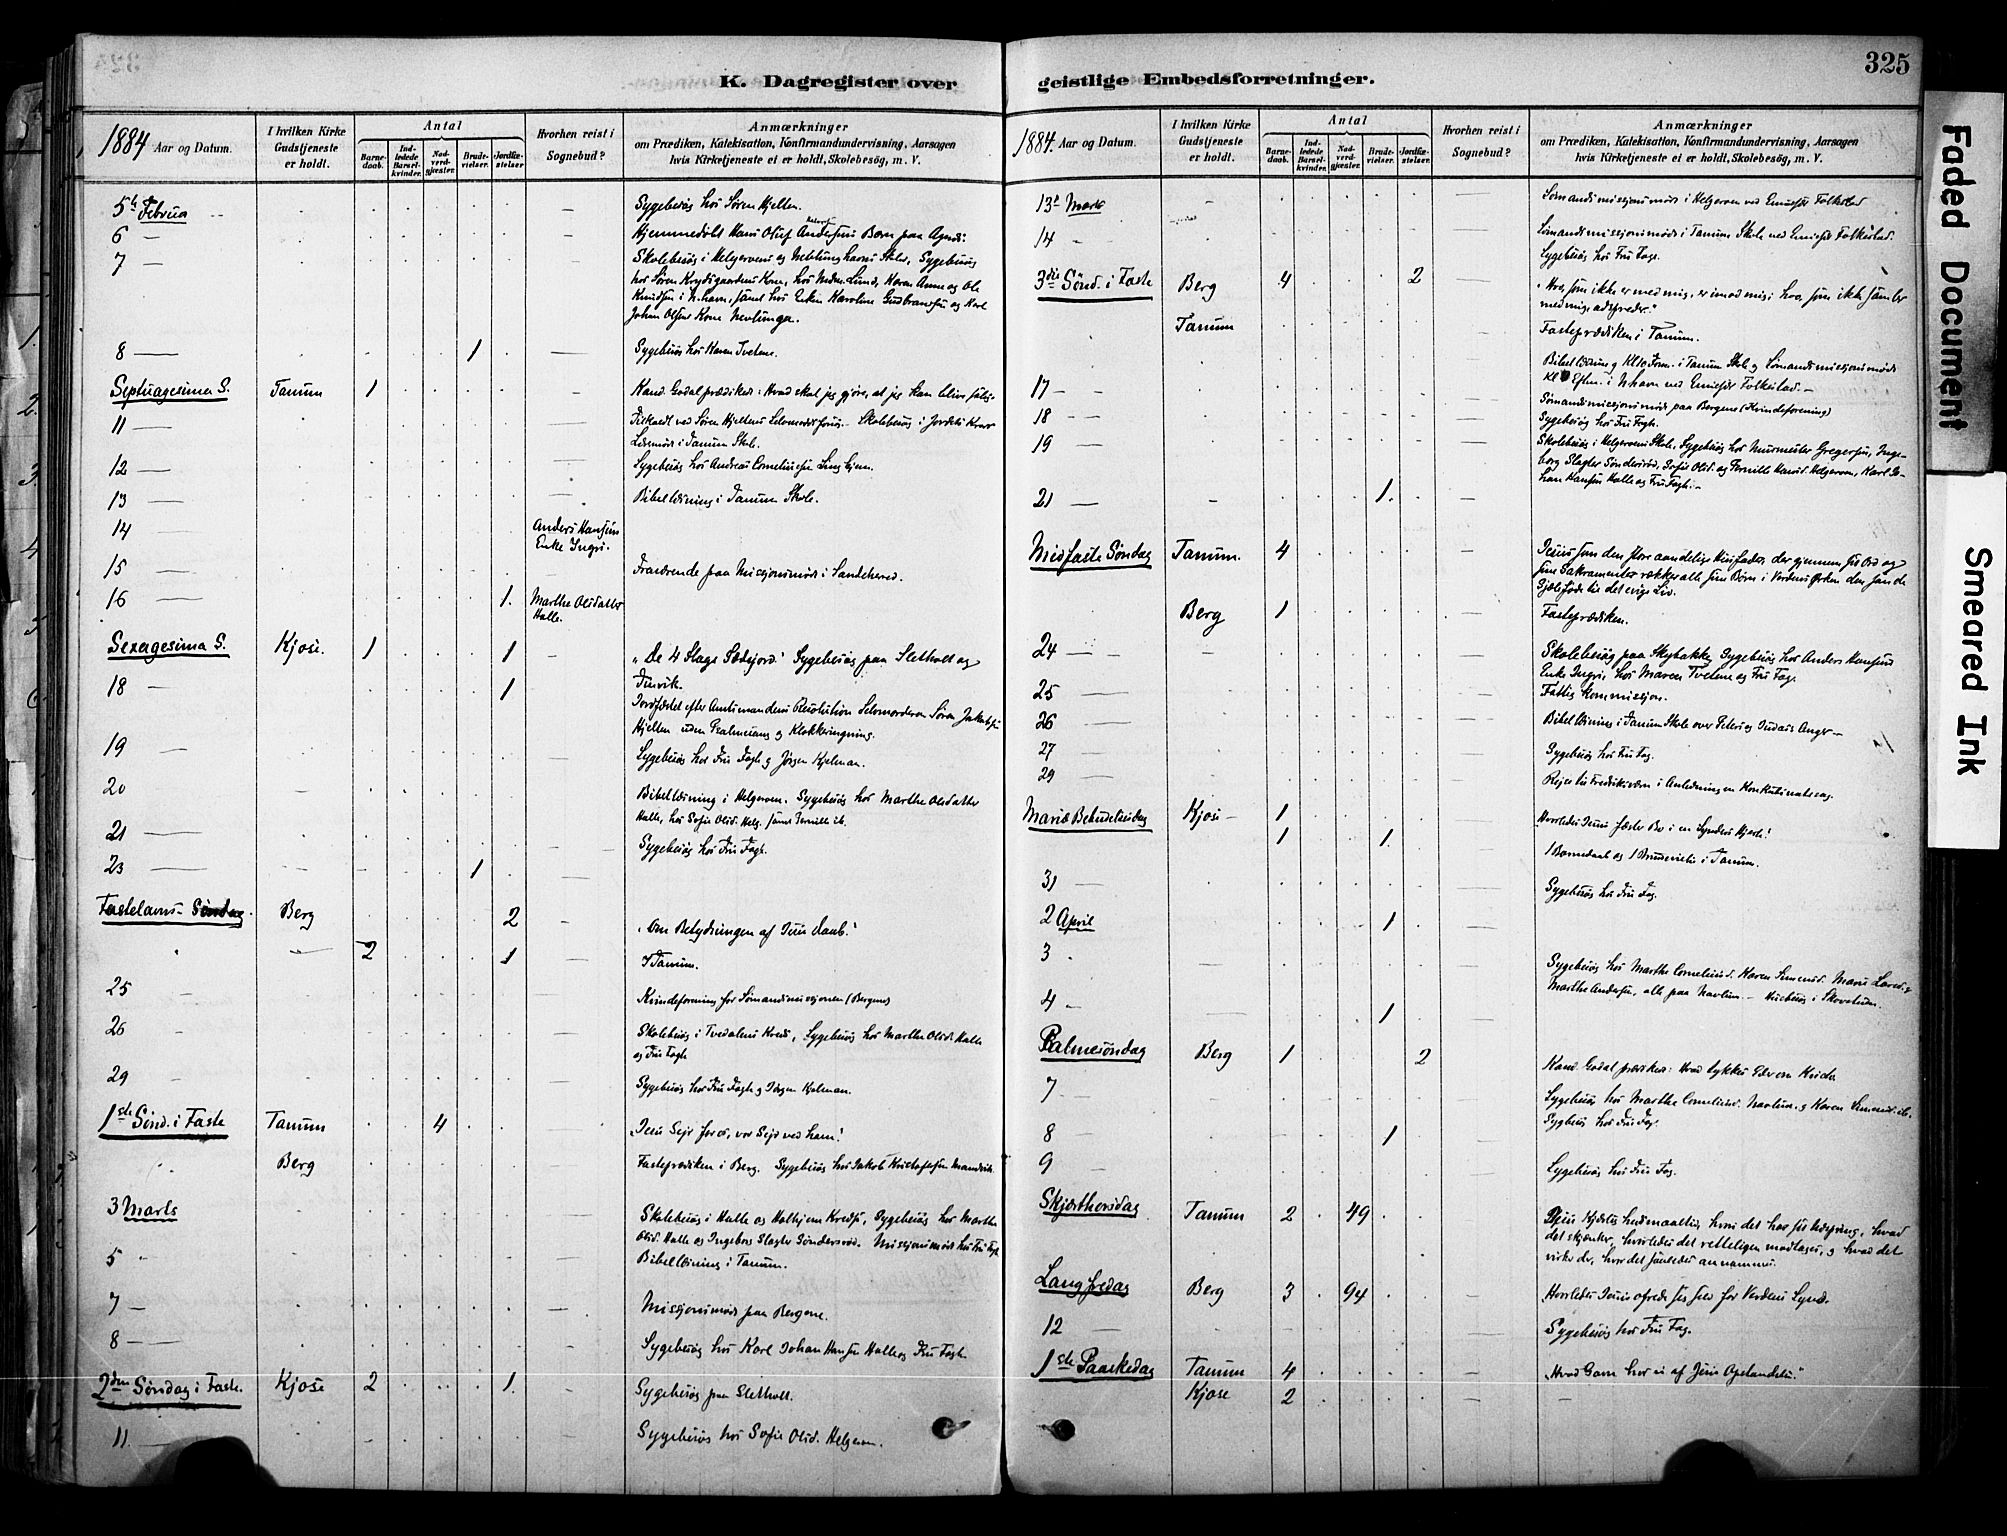 K. Dagregister over geistlige Embedsforretninger.
325
Faded Document
Smeared Ink
1884 Aar og Datum.
I hvilken Kirke Gudstjeneste er holdt.
Antal
Barnedaab.
Indledede Barselkvinder.
Nadverdgjæster.
Brudevielser.
Jordfæstelser.
Hvorhen reist i Sognebud?
Anmærkninger
om Prædiken, Katekisation, Konfirmandundervisning, Aarsagen
hvis Kirketjeneste ei er holdt, Skolebesög, m. V.
5te Februa Sygebesøg hos Søren Hjelten.
6 — Hjemmedøbt Hans Oluf Andersens Barn paa
7 — Skolebesøg i Helgeroens og Nevlunghavns Skler, Sygebesøg
hos Søren Kone, hos Lund, Karen Anne og Ole
Knudsen i N.havn, samt hos Enken Karoline Gudbransen og Karl
Johan Olsens Kone Nevlungh.
8 — 1 — Sygebesøg hos Karen Tvetene.
Septuagesima S. Tanum 1 Kand. Godal prædikede: Hvad skal jeg gjøre, at jeg kan blive salig.
11 — ved Søren Hjeltens Skolebesøg i Kreds
i Tanum Skole.
12 — Sygebesøg hos Andreas Corneliussen
13 — Bibellæsning i Tanum Skole.
14 — Anders Hansens
Enke Ingri.
15 — Fraværende paa Missjonsmøde i Sandeherred.
16 — 1. Marthe Olsdatter
Halle.
Sexagesima S. Kjose. 1 1 „De 4 Slags Sædejord." Sygebesøg paa Sletholt og
18 — 1
Jordfæstet efter Amtmandens Resolution Selvmorderen Søren Jakobsen
Hjelten uden Psalmesang og Klokkeringning.
19 — Sygebesøg hos Fru Fogh og Jörgen Kjelman.
20 — Bibellæsning i Helgeroen. Sygebesøg hos Marthe Olsdatter
Halle, hos Sofie Olsd. Helg. samt Pernille ib.
21 — Sygebesøg hos Fru Fogh.
23 — 1
Fastelavns-Søndag. Berg 2 „Om Betydningen af Jesu daab."
— 2 1 I Tanum.
25 Kvindeforening for Sømandsmissjonen (Bergene)
26 Skolebesøg i Tvedalens Kreds, Sygebesøg hos Marthe Olsd. Halle
og Fru Fogh
29 Sygebesøg hos Fru Fogh og Jörgen Kjelman.
1ste Sønd. i Faste Tanum 4 „Jesu Sejr for os, vor Sejr ved ham."
Berg Fasteprædiken i Berg. Sygebesøg hos Jakob Kristofersen
3 Marts Skolebesøg i Halle og Holhjem Kredse, Sygebesøg hos Marthe
Olsd. Halle og Ingeborg Slagter Søndersrød. Missjonsmøde hos Fru Fogh
5 Bibellæsning i Tanum.
7 — Missjonsmøde paa Bergene.
8 — Sygebesøg hos Karl Johan Hansen Halle og Fru Fogh
2den Søndag i Faste. Kjose 2 1. Sygebesøg paa Sletholt.
11. — Sygebesøg hos Sofie Olsd. Helgeroen.
1884 Aar og Datum.
I hvilken Kirke Gudstjeneste er holdt.
Antal
Barnedaab.
Indledede Barselkvinder.
Nadverdgjæster.
Brudevielser.
Jordfæstelser.
Hvorhen reist i Sognebud?
Anmærkninger
om Prædiken, Katekisation, Konfirmandundervisning, Aarsagen
hvis Kirketjeneste ei er holdt, Skolebesög, m. V.
13de Marts Sømandsmissjonsmøde i Helgeroen ved Emissær Folkestad
14 Sømandsmissjonsmøde i Tanum Skole ved Emissær Folkestad.
Sygebesøg hos Fru Fogh.
3die Sønd. i Faste Berg 4 2 „Hvo, som ikke er med mig, er imod mig; hvo, som ikke samler
med mig, adspreder."
Tanum Fasteprædiken i Tanum.
Bibellæsning Kl 10 Form. i Tanum Skole og Sømandsmissjonsmøde
17 — Kl Eftm. i N.havn ved Emissær Folkestad. —
18 — Sømandsmissjonsmøde paa Bergene (Kvindeforening)
Sygebesøg hos Fru Fogh.
19 Skolebesøg i Helgeroens Skole, Sygebesøg hos Murmester Gregersen, Inge-
borg Slagter Søndersrød, Sofie Olsd. og Pernille Hansd. Helgeroen, Karl Jo-
han Hansen Halle og Fru Fogh. —
21 — 1.
Midfaste Søndag Tanum. 4 Jesus som den store aandelige Husfader, der gjennem sit Ord og
sine Sakramenter rækker alle sine Børn i Verdens Ørken den sande
Sjæleføde til det evige Liv.
Berg 1 Fasteprædiken.
24 — Skolebesøg paa Skybakke, Sygebesøg hos Anders Hansens
Enke Ingri, hos Maren Tvetene og Fru Fogh.
25 — Fattigkommissjon.
26 — Bibellæsning i Tanum Skole over Peters og Judas's Anger —
27 — Sygebesøg hos Fru Fogh.
29 — Rejse til Fredriksværn i Anledning en
Mariæ Bebudelsesdag Kjose — 1 Hvorledes Jesus fæster Bo i en Synders Hjerte!
1 1. 1 Barnedaab og 1 Brudevielse i Tanum.
31 — Sygebesøg hos Fru Fogh.
2 April 1
3 Sygebesøg hos Marthe Corneliusd. Karen Simensd. Maren Larsd. og
4 — 1 Marthe Andersen, alle paa Navlun. — Husbesøg i
Palmesøndag Berg 1 2 Kand. Godal prædiked:
7 — Sygebesøg hos Marthe Corneliusd. Navlun. og Karen Simensd. ib.
Sygebesøg hos Fru Fogh.
8 — 1
9 Sygebesøg hos Fru Fogh.
Skjærthorsdag Tanum 2 49 Jesu Kjærligheds maaltid, hvori det har sit Udspring, hvad
det skjænker, hvorledes det retteligen modtages, og hvad det
virker der, hvor det saaledes annammes.
Langfredag Berg 3 94 Hvorledes Jesus ofrede sig selv for Verdens Synd.
12 — Sygebesøg hos Fru Fogh.
1ste Paaskedag Tanum 4 „Hvad Gavn har vi af Jesu Opstandelse."
Kjose 2 —